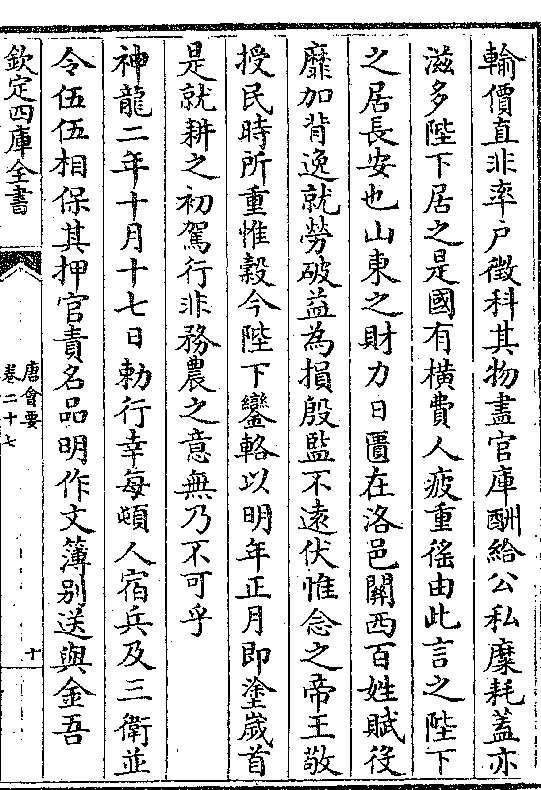 輸價直非率戶徵科其物盡官庫酬給公私糜耗蓋亦
滋多陛下居之是國有橫費人疲重徭由此言之陛下
之居長安也山東之財力日匱在洛邑關西百姓賦役
靡加背逸就勞破益為損殷監不遠伏惟念之帝王敬
授民時所重惟穀今陛下鑾輅以明年正月即塗嵗首
是就耕之初駕行非務農之意無乃不可乎
神龍二年十月十七日勅行幸每頓人宿兵及三衛並
令伍伍相保其押官責名品明作文簿别送與金吾
欽定四庫全書
唐會要
卷二十七
十